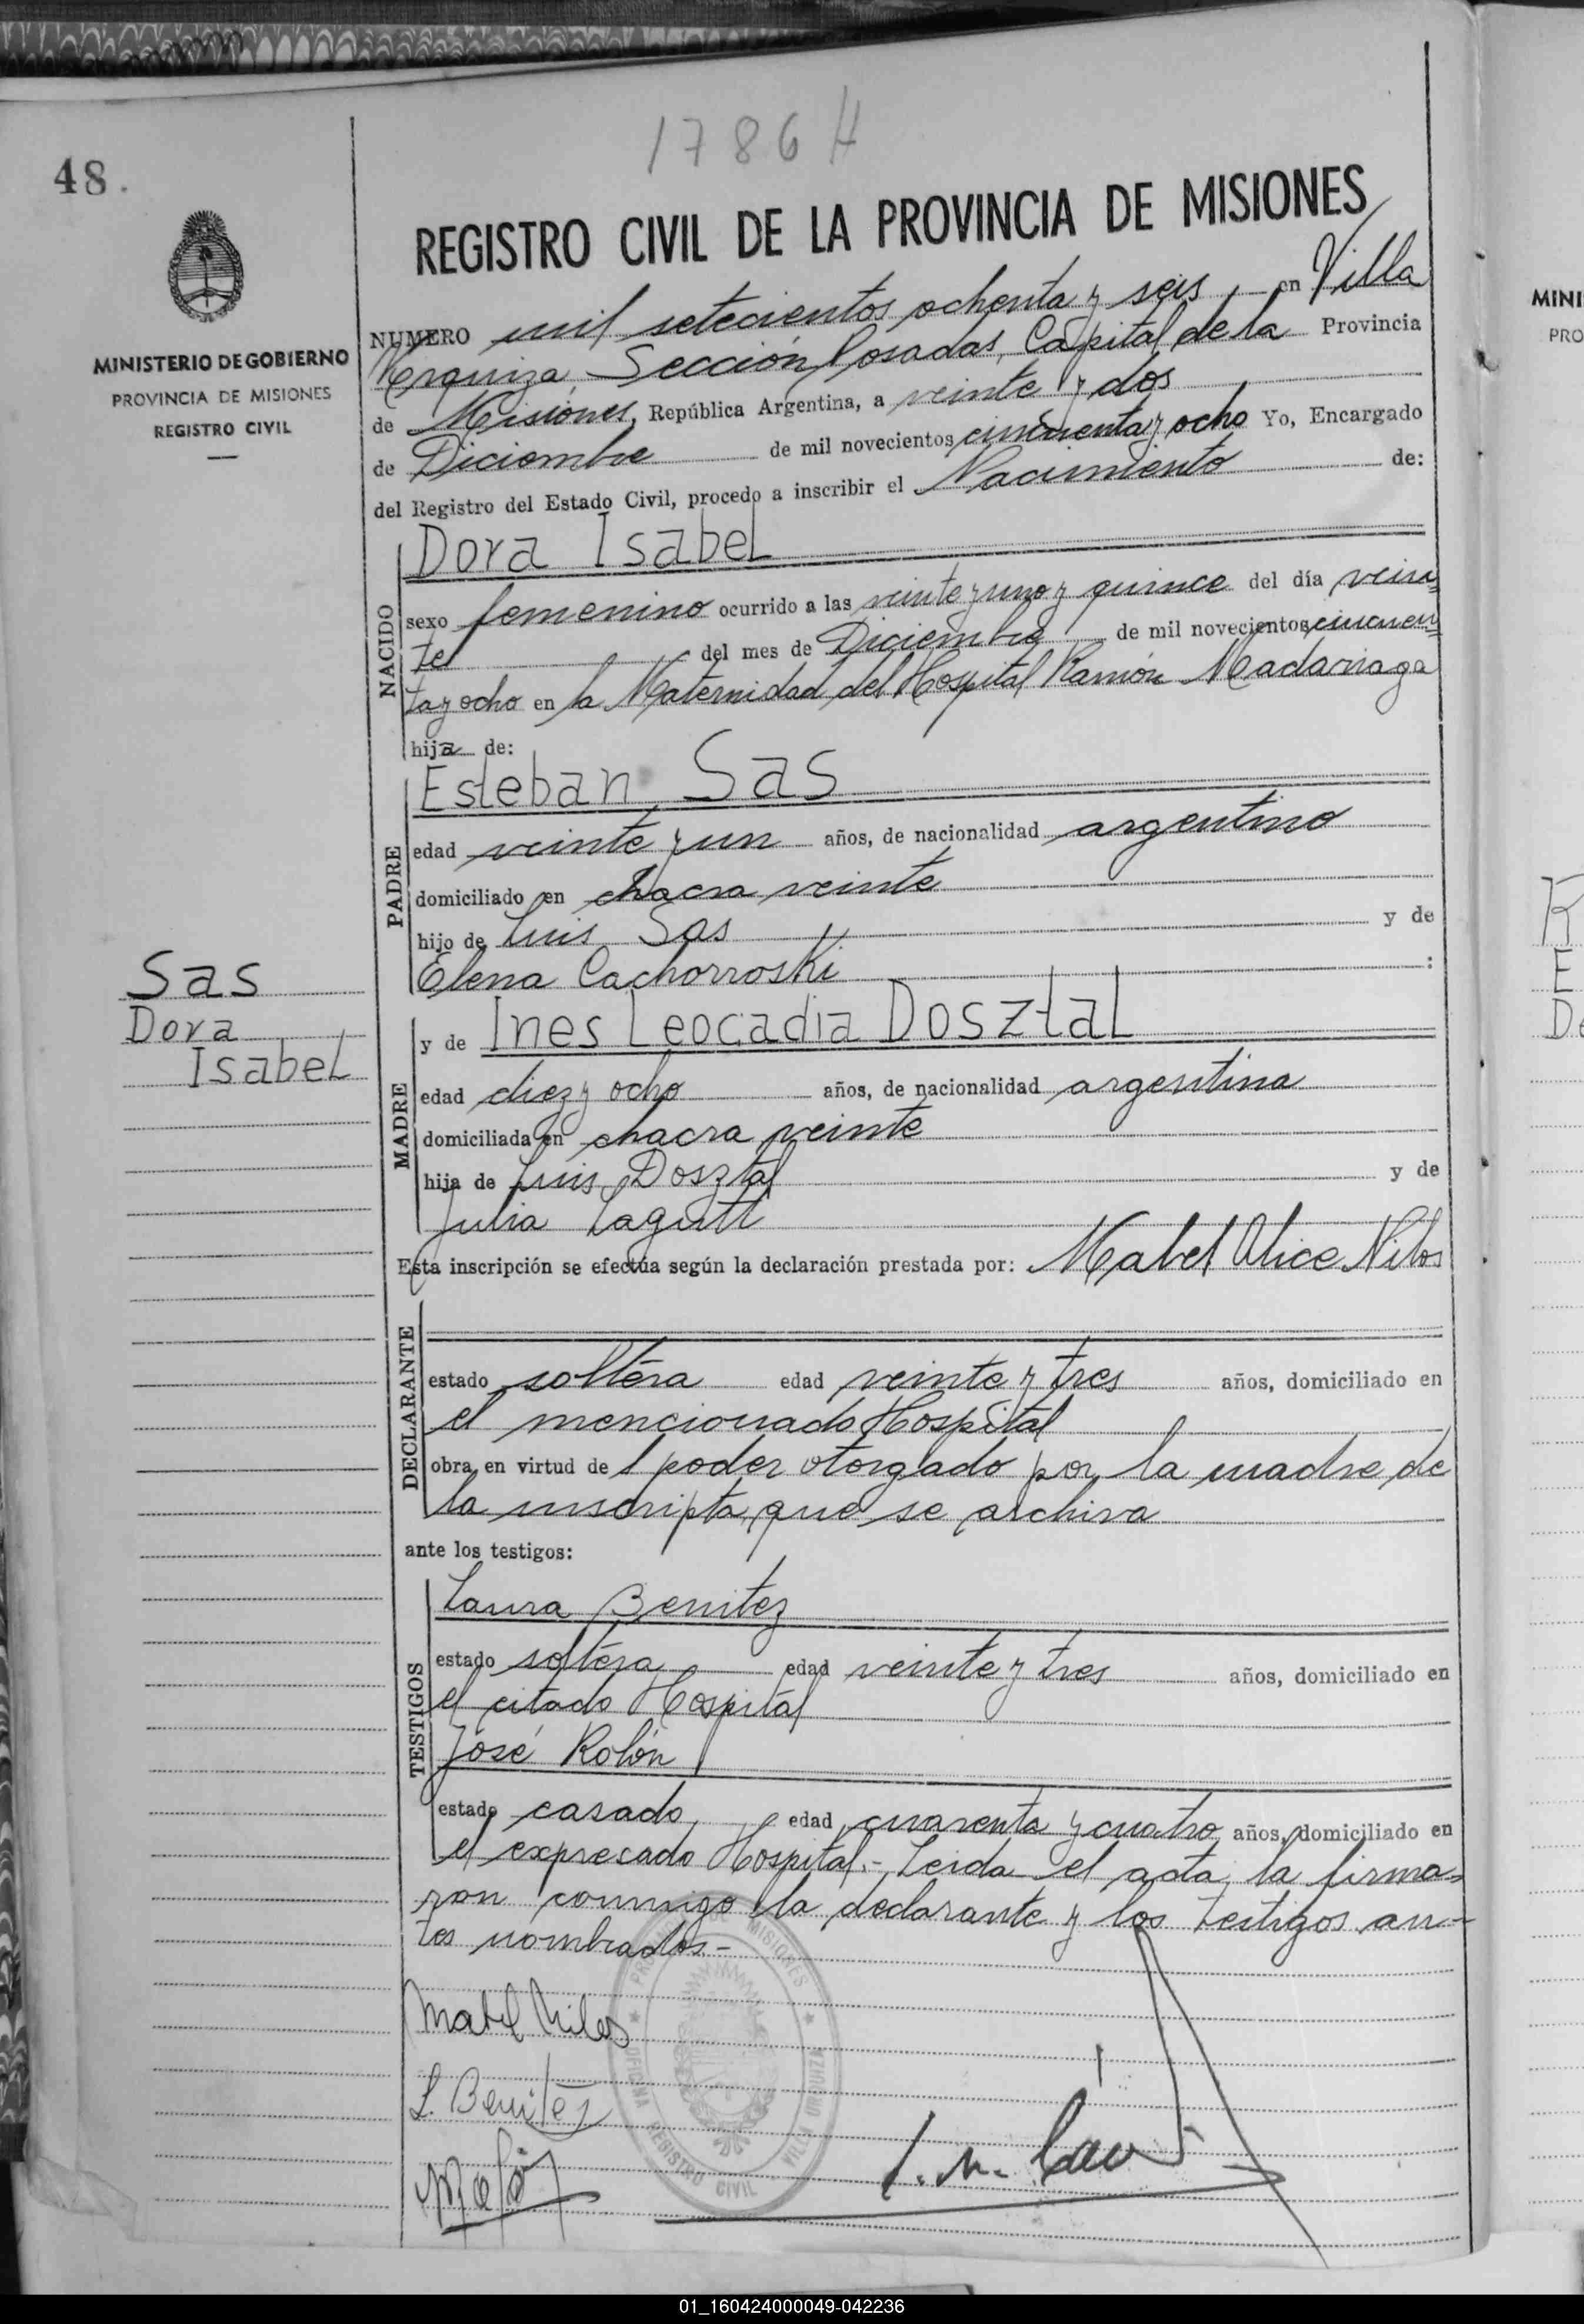 1786 H
48.
REGISTRO CIVIL DE LA PROVINCIA DE MISIONES
MINISTERIO DE GOBIERNO
PROVINCIA DE MISIONES
REGISTRO CIVIL
NUMERO mil setecientos ochenta y seis, en Villa
Urquiza, Sección Posadas, Capital de la Provincia
de Misiones, República Argentina, a veinte y dos
de Diciembre de mil novecientos cincuenta y ocho Yo, Encargado
del Registro del Estado Civil, procedo a inscribir el Nacimiento de:
NACIDO
Dora Isabel
sexo femenino ocurrido a las veinte y uno y quince del día vein=
te del mes de Diciembre de mil novecientos cincuen=
ta y ocho en la Maternidad del Hospital Ramón Madariaga
hija de:
PADRE
Esteban Sas
edad veinte y un años, de nacionalidad argentino
domiciliado en chacra veinte
hijo de Luis Sas y de
Elena Cachorroski :
Sas
Dora
Isabel
MADRE
y de Ines Leocadia Dosztal
edad diez y ocho años, de nacionalidad argentina
domiciliada en chacra veinte
hija de Luis Dosztal y de
Julia Lagutt
Esta inscripción se efectúa según la declaración prestada por: Mabel Alice Nilos
DECLARANTE
estado soltera edad veinte y tres años, domiciliado en
el mencionado Hospital
obra en virtud de l poder otorgado por la madre de
la inscripta, que se archiva
ante los testigos:
TESTIGOS
Laura Benitez
estado soltera edad veinte y tres años, domiciliado en
el citado Hospital
José Rolón
estado casado, edad cuarenta y cuatro años, domiciliado en
el expresado Hospital.- Leida el acta, la firma=
ron conmigo la declarante y los testigos an-
tes nombrados.-
Mabel Nilos
L. Benitez
PROVINCIA DE MISIONES
OFICINA REGISTRO CIVIL VILLA URQUIZA
MINI
PRO
01_160424000049-042236